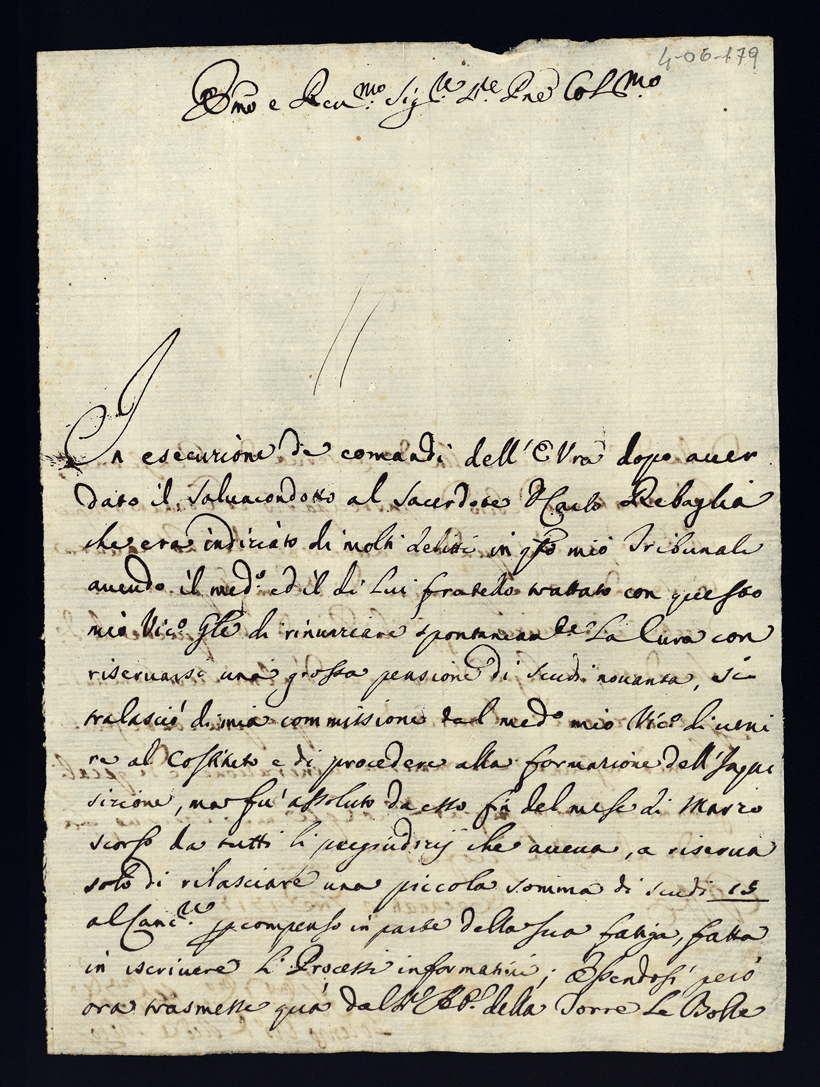 4-06-179
Emo e Reu.mo Sig.re Sre Pne Col.mo
In esecuzione de comandi dell'E Vra dopo auer
dato il saluacondotto al sacerdote D Carlo Rebaglia
che era indiziato di molti delitti in qsto mio Tribunale
auendo il med.o ed il di lui fratello trattato con questo
mio Vic.o Gle di rinunziare spontanea La Cura con
riseruarsi una grossa pensione di scudi nouanta, si
tralasciò di mia commissione dal med.o mio Vic.o di ueni
re al Costituto e di procedere alla formazione dell'Inqui
sizione, ma fu assoluto da esso fin del mese di Marzo
scorso da tutti li pregiudizij che aueua, a riserua
solo di rilasciare una piccola somma di scudi 15
al Canc.re p compenso in parte della sua fatiga, fatta
in iscriuere li Processi informatiui; Essendosi però
ora trasmesse quà dal della Torre le Bolle